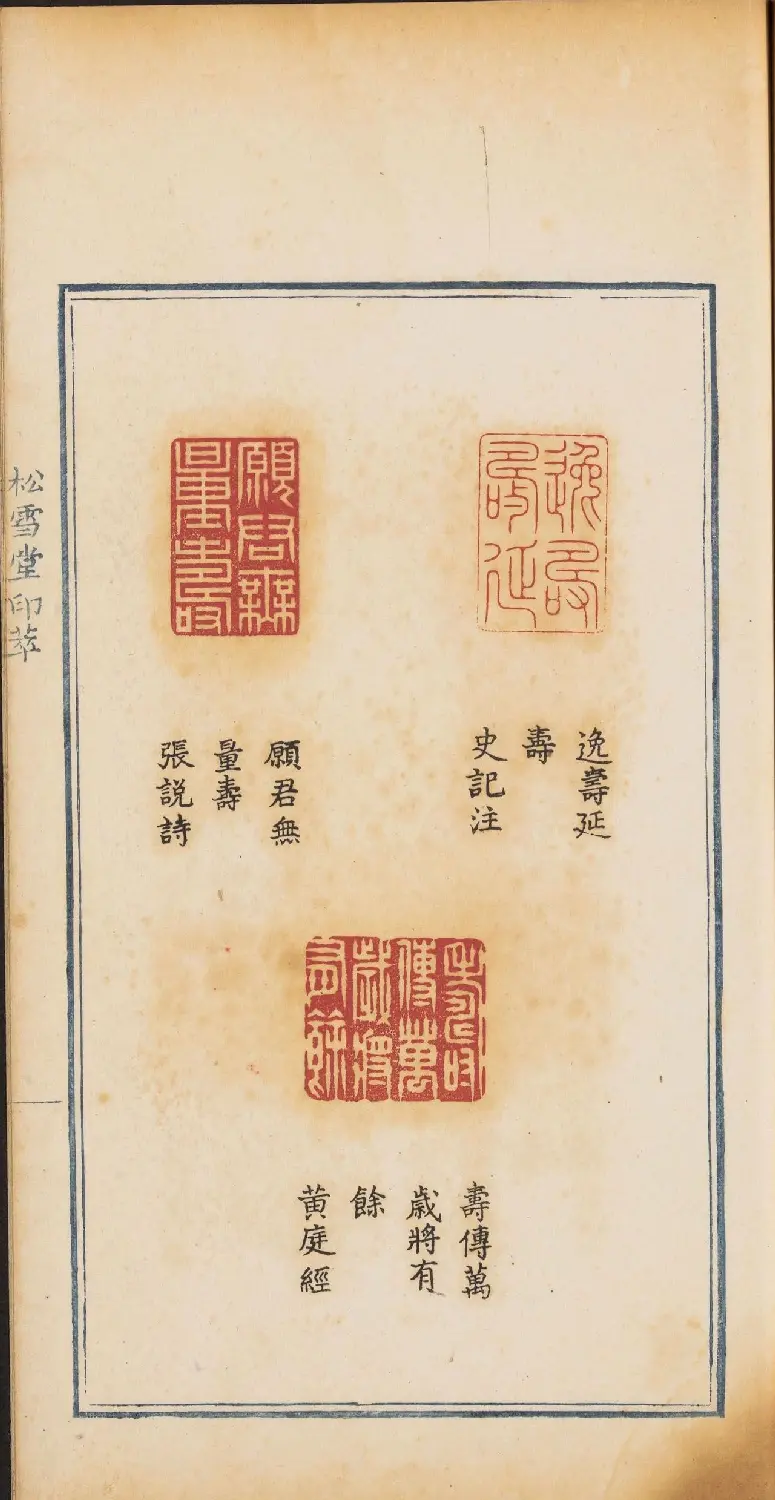 逸壽
壽延
逸壽延
壽
史記注
願君無
量壽
願君無
量壽
張説詩
壽
傳萬
歲將
有餘
壽傳萬
歲將有
餘
黄庭經
松雪堂印萃